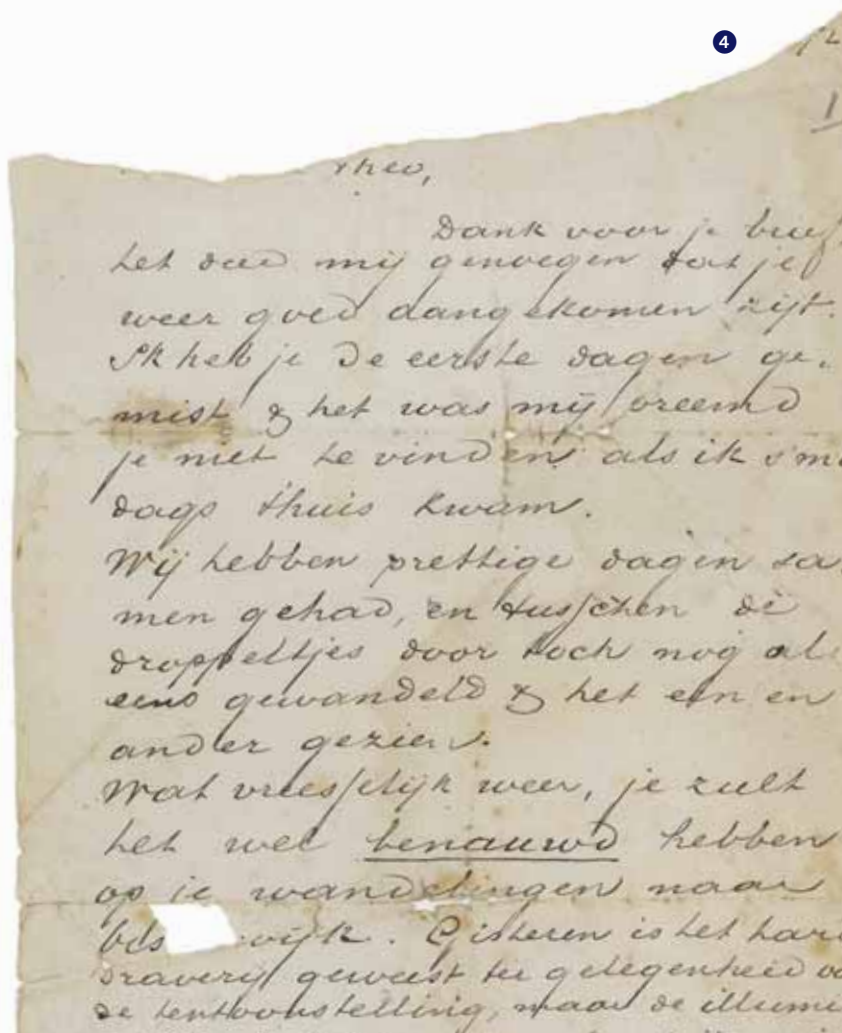 4
1
Theo,
Dank voor je brief,
het deed mij genoegen dat je
weer goed aangekomen zijt.
Ik heb je de eerste dagen ge-
mist & het was mij vreemd
je niet te vinden als ik s'm
dags thuis kwam.
Wij hebben prettige dagen sa
men gehad, en tusschen de
droppeltjes door toch nog al
eens gewandeld & het een en
ander gezien.
Wat vreesselijk weer, je zult
het wel benauwd hebben
op je wandelingen naar
Ois wijk. Gisteren is het hard
draverij geweest ter gelegenheid va
de tentoonstelling, maar de illumi